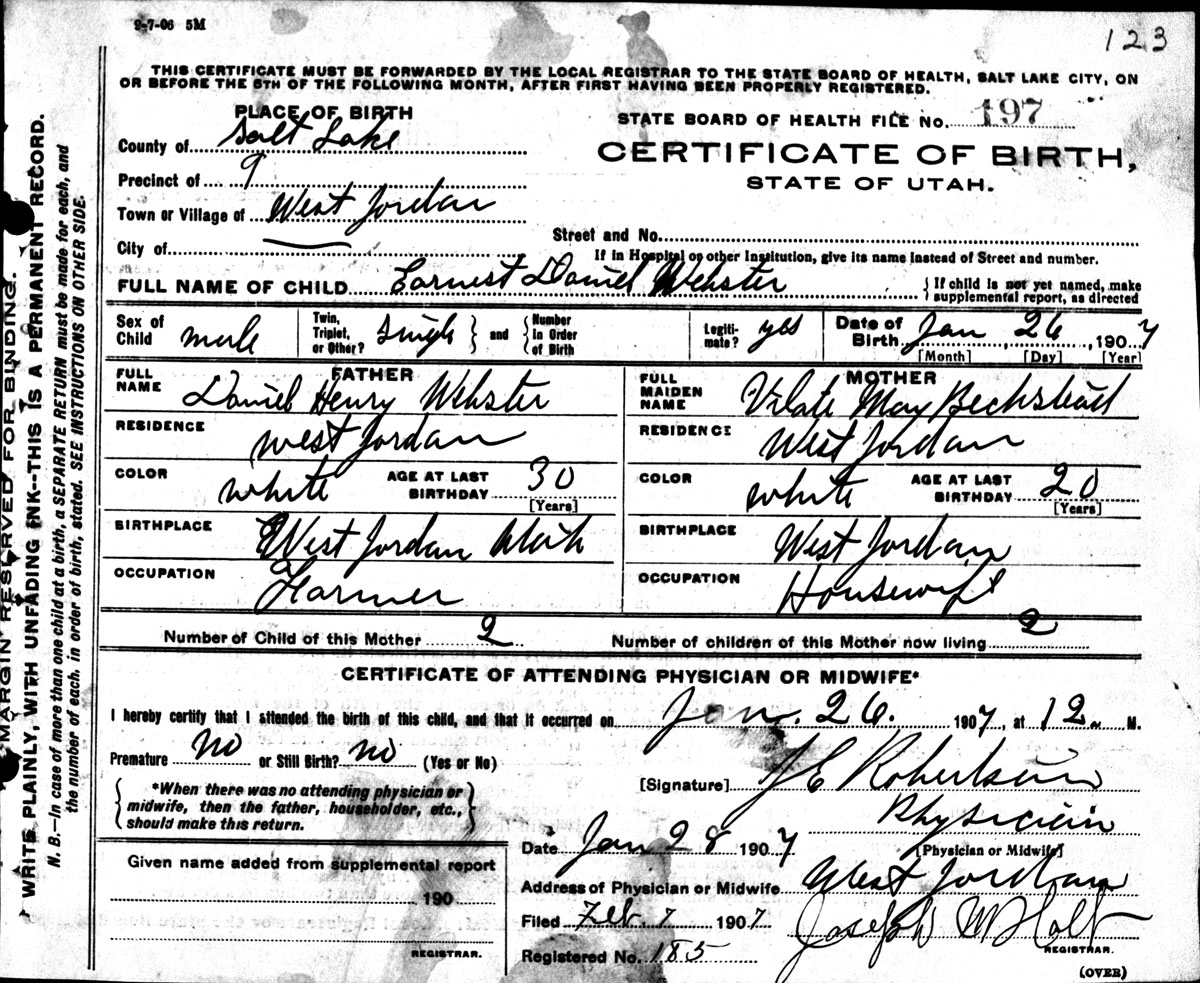 9-7-06 5M
123
THIS CERTIFICATE MUST BE FORWARDED BY THE LOCAL REGISTRAR TO THE STATE BOARD OF HEALTH, SALT LAKE CITY, ON
OR BEFORE THE 5TH OF THE FOLLOWING MONTH, AFTER FIRST HAVING BEEN PROPERLY REGISTERED.
PLACE OF BIRTH
STATE BOARD OF HEALTH FILE No. 197
County of Salt Lake
CERTIFICATE OF BIRTH,
STATE OF UTAH.
Precinct of 9
Town or Village of West Jordan
City of
Street and No.
If in Hospital or other Institution, give its name instead of Street and number.
FULL NAME OF CHILD Earnest Daniel Webster
{If child is not yet named, make
supplemental report, as directed
Sex of Child male
Twin, Triplet, or Other? single } and { Number In Order of Birth
Legiti- mate? yes
Date of Birth Jan 26, 1907
[Month] [Day] [Year]
FATHER
FULL NAME Daniel Henry Webster
RESIDENCE West Jordan
COLOR white AGE AT LAST BIRTHDAY 30
[Years]
BIRTHPLACE West Jordan Utah
OCCUPATION Farmer
MOTHER
FULL MAIDEN NAME Vilate May Bechstead
RESIDENCE West Jordan
COLOR white AGE AT LAST BIRTHDAY 20
[Years]
BIRTHPLACE West Jordan
OCCUPATION Housewife
Number of Child of this Mother 2 Number of children of this Mother now living 2
CERTIFICATE OF ATTENDING PHYSICIAN OR MIDWIFE*
I hereby certify that I attended the birth of this child, and that it occurred on Jan. 26. 1907, at 12 M.
Premature no or Still Birth? no (Yes or No)
{*When there was no attending physician or
midwife, then the father, householder, etc.,
should make this return.}
[Signature] J E Robertson
Physician
[Physician or Midwife]
Date Jan 28 1907
Address of Physician or Midwife West Jordan
Filed Feb 7 1907 Joseph M Holt
REGISTRAR.
Registered No. 185
(OVER)
Given name added from supplemental report
190
REGISTRAR.
MARGIN RESERVED FOR BINDING.
WRITE PLAINLY, WITH UNFADING INK--THIS IS A PERMANENT RECORD.
N. B.—In case of more than one child at a birth, a SEPARATE RETURN must be made for each, and
the number of each, in order of birth, stated. SEE INSTRUCTIONS ON OTHER SIDE.